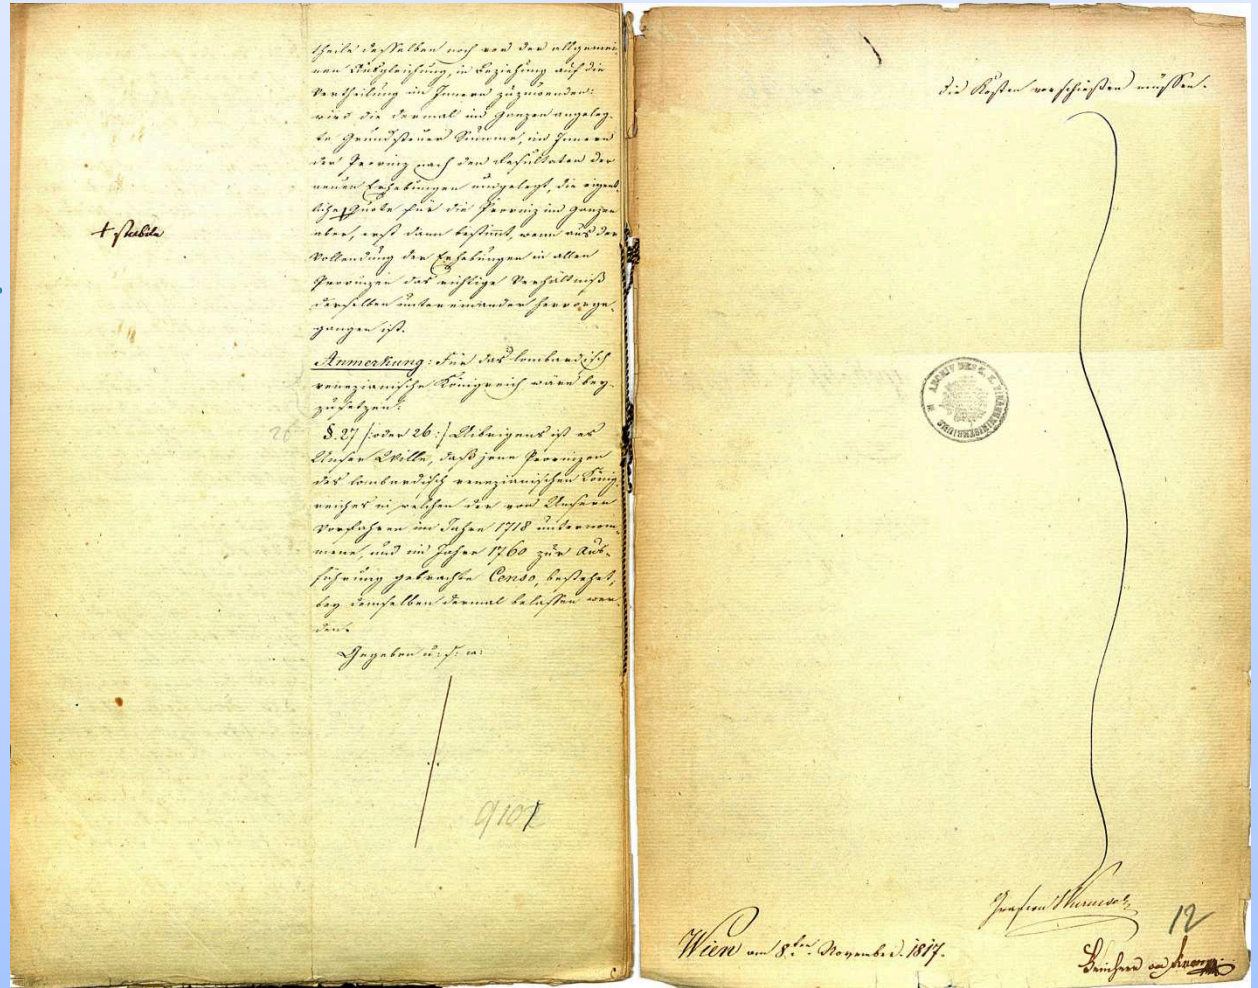 theile desselben noch vor der allgemei-
nen Ausgleichung, in Beziehung auf die
Vertheilung im Innern zuzuwenden:
wird die dermal im Ganzen angeleg-
te Grundsteuer Summe, im Innern
der Provinz nach den Resultaten der
neuen Erhebungen umgelegt, die eigent-
liche + Quote für die Provinz im Ganzen
aber, erst dann bestimmt, wenn aus der
Vollendung der Erhebungen in allen
Provinzen das richtige Verhältniß
derselben untereinander hervorge-
gangen ist.
+ stabile
Anmerkung: Für das lombardisch
venezianische Königreich wäre bey-
zusetzen:
26
§. 27 /: oder 26 :/ Uibrigens ist es
Unser Wille, daß jene Provinzen
des lombardisch venezianischen König-
reiches in welchen der von Unsern
Vorfahren im Jahre 1718 unternom-
mene, und im Jahre 1760 zur Aus-
führung gebrachte Censo, bestehet,
bey demselben dermal belassen wer-
den.
Gegeben u: s: w:
9102
die Kosten vorschießen müssen.
ARCHIV DES K. K. FINANZMINISTERIUMS
12
Wien am 8ten November 1817.